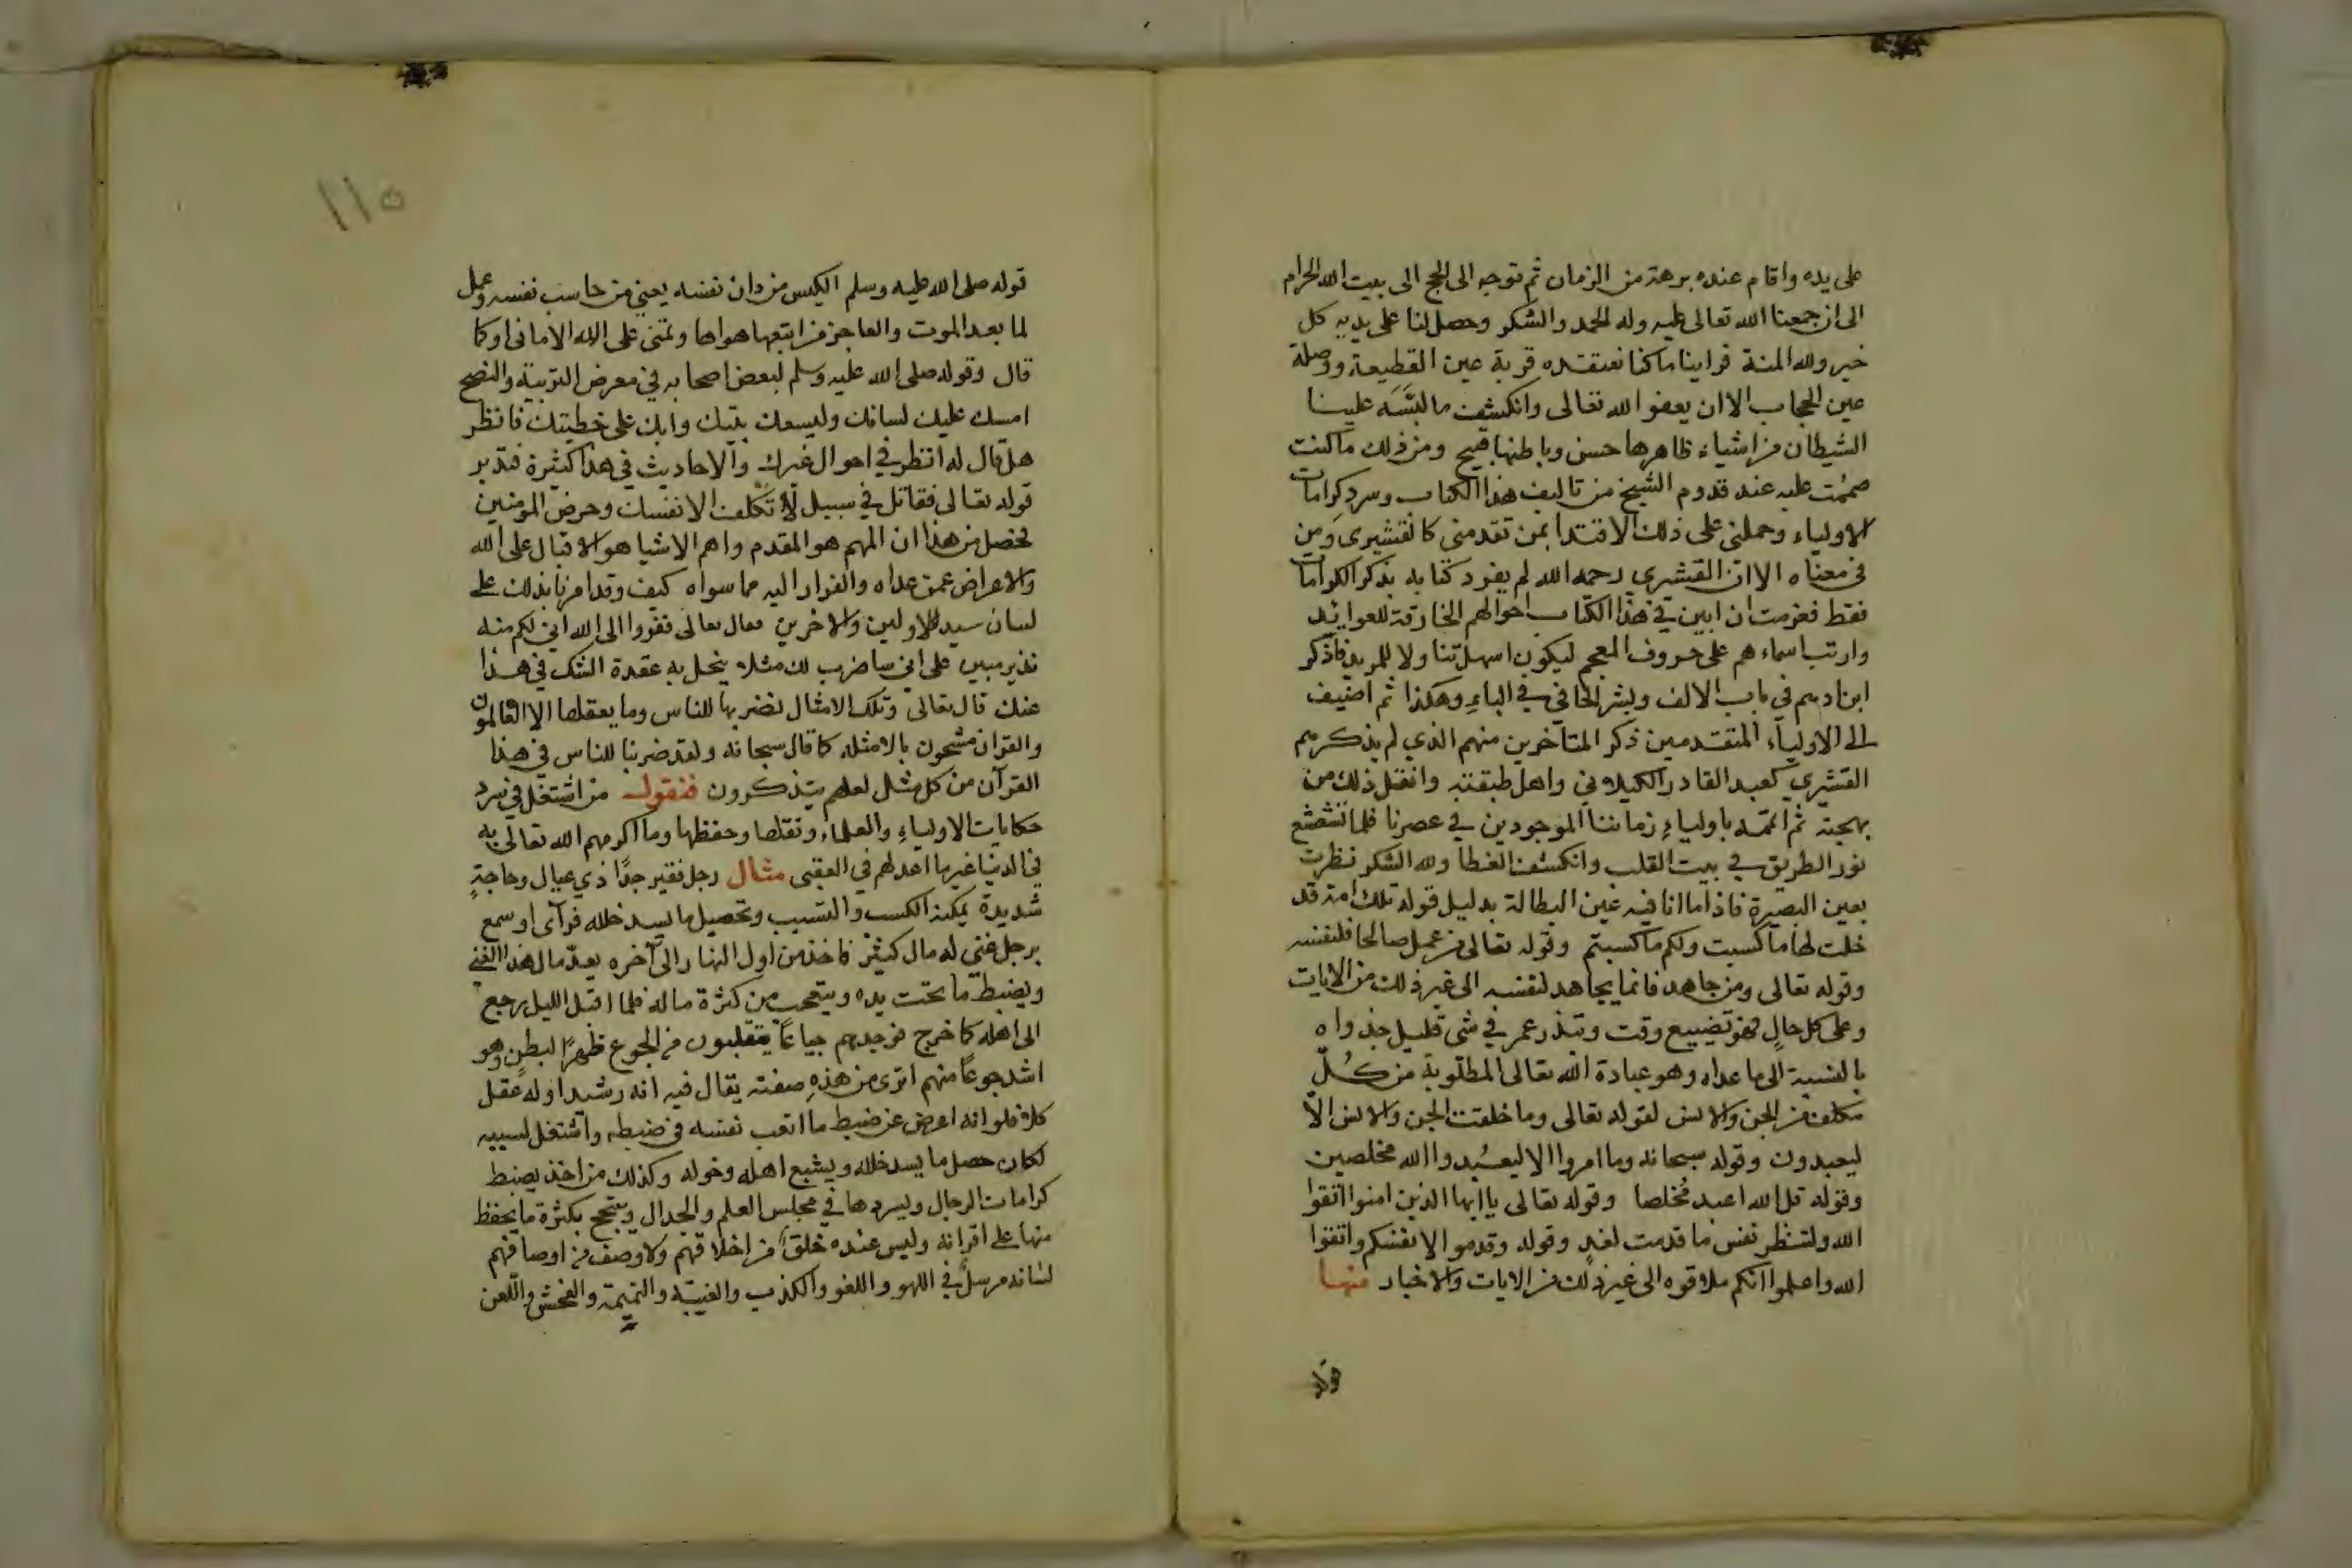 على يده واقام عنده برهة من الزمان ثم توجه الى الحج الى بيت الله الحرام
الى ان جمعنا الله تعالى عليه وله الحمد والشكر وحصل لنا على يديه كل
خير ولله المنة فراينا ما كنا نعتقده قربة عين القطيعة ووصلة
عين الحجاب الا ان يعفو الله تعالى وانكشف ما لبَّسَه علينا
الشيطان من اشياء ظاهرها حسن وباطنها قبيح ومن ذلك ما كنت
صممت عليه عند قدوم الشيخ من تاليف هذا الكتاب وسرد كرامات
الاولياء وحملني على ذلك الاقتدا بمن تقدمني كالقشيرى ومن
فى معناه الا ان القشيري رحمه الله لم يفرد كتابه بذكر الكرامات
فقط فعزمت ان ابين في هذا الكتاب احوالهم الخارقة للعوائد
وارتب اسماءهم على حروف المعجم ليكون اسهل تناولا للمريد فاذكر
ابن ادهم في باب الالف وبشر الحافي في الباءِ وهكذا ثم اضيف
الى الاولياء المتقدمين ذكر المتاخرين منهم الذي لم يذكرهم
القشيري كعبد القادر الكيلاني واهل طبقته وانقل ذلك من
بهجته ثم اتممه باولياءِ زماننا الموجودين في عصرنا فلما تشعشع
نور الطريق في بيت القلب وانكشف الغطا ولله الشكر نظرت
بعين البصيرة فاذا ما انا فيه عين البطالة بدليل قوله تلك امة قد
خلت لها ما كسبت ولكم ما كسبتم وقوله تعالى من عمل صالحا فلنفسه
وقوله تعالى ومن جاهد فانما يجاهد لنفسه الى غير ذلك من الايات
وعلى كل حالٍ فهو تضييع وقت وتبذر عمر في شى قليل جدواه
بالنسبة الى ما عداه وهو عبادة الله تعالى المطلوبة من كُلّ
مكلف من الجن والانس لقوله تعالى وما خلقت الجن والانس الاّ
ليعبدون وقوله سبحانه وما امروا الا ليعبُدوا الله مخلصين
وقوله قل الله اعبد مُخلصا وقوله تعالى يا ايها الذين امنوا اتقوا
الله ولتنظر نفس ما قدمت لغدٍ وقوله وقدموا لانفسكم واتقوا
الله واعلموا انكم ملاقوه الى غير ذلك من الايات والاخبار منها
قوله
١١٥
قوله صلى الله عليه وسلم الكيس من دان نفسه يعني من حاسب نفسه وعمل
لما بعد الموت والعاجز من اتبعها هواها وتمنى على الله الامانى او كما
قال وقوله صلى الله عليه وسلم لبعض اصحابه في معرض التربية والنصح
امسك عليك لسانك وليسعك بيتك وابك على خطيئتك فانظر
هل قال له انظر في احوال غيرك والاحاديث في هذا كثيرة فتدبر
قوله تعالى فقاتل في سبيل الله لا تكلف الا نفسك وحرض المومنين
تحصل من هذا ان المهم هو المقدم واهم الاشيا هو الاقبال على الله
والاعراض عمن عداه والفرار اليه مما سواه كيف وقد امرنا بذلك على
لسان سيد الاولين والاخرين فقال تعالى ففروا الى الله اني لكم منه
نذير مبين على اني ساضرب لك مثلا ينحل به عقدة الشك في هذا
عنك قال تعالى وتلك الامثال نضربها للناس وما يعقلها الا العالمون
والقران مشحون بالامثله كما قال سبحانه ولقد ضربنا للناس في هذا
القرآن من كل مثل لعلهم يتذكرون فنقول من اشتغل في سرد
حكايات الاولياءِ والعلماء ونقلها وحفظها وما اكرمهم الله تعالى به
في الدنيا غير ما اعد لهم في العقبى مثال رجل فقير جدًا ذي عيال وحاجةٍ
شديدة يمكنه الكسب والتسبب وتحصيل ما يسد خلله فرآى او سمع
برجل غني له مال كثير فاخذ من اول النهار الى آخره يعدّ مال هذا الغني
ويضبط ما تحت يده ويتعجب من كثرة ماله فلما اقبل الليل رجع
الى اهله كما خرج فوجدهم جياعًا يتقلبون من الجوع ظهرًا لبطنٍ وهو
اشد جوعًا منهم اترى من هذهِ صفته يقال فيه انه رشيد او له عقل
كلا فلو انه اعرض عن ضبط ما اتعب نفسه في ضبطه واشتغل لسببه
لكان حصل ما يسد خلله ويشبع اهله وخوله وكذلك من اخذ يضبط
كرامات الرجال ويسردها في مجلس العلم والجدال ويتبجح بكثرة ما يحفظ
منها على اقرانه وليس عنده خلق من اخلاقهم ولا وصف من اوصافهم
لسانه مرسلٌ في اللهو واللغو والكذب والغيبة والنميمة والفحش واللعن